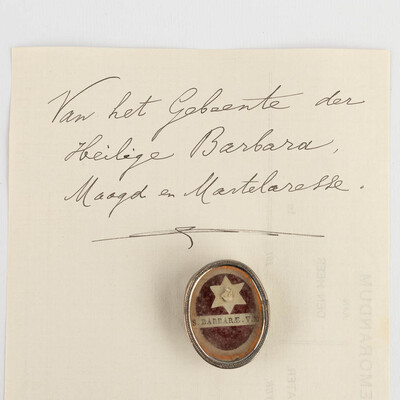 Van het Gebeente der
Heilige Barbara,
Maagd en Martelaresse.
S. BARBARÆ. V.
MEMORANDUM